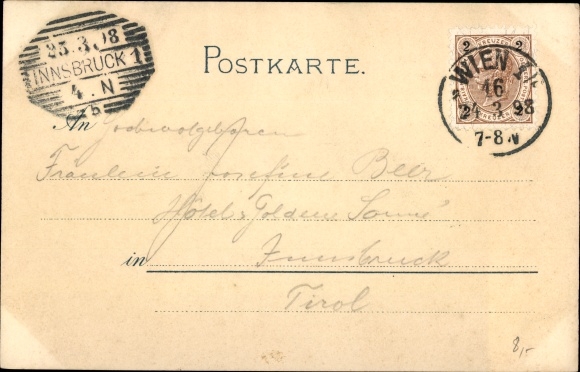 25.3.98
INNSBRUCK 1
4.N
5b
POSTKARTE.
2 KREUZER 2
WIEN 1/1
16
24.3.98
7-8.N
An Hochwolgeboren
Fräulein Josefine Beer
Hôtel „Goldene Sonne“
in Innsbruck
Tirol
8,-